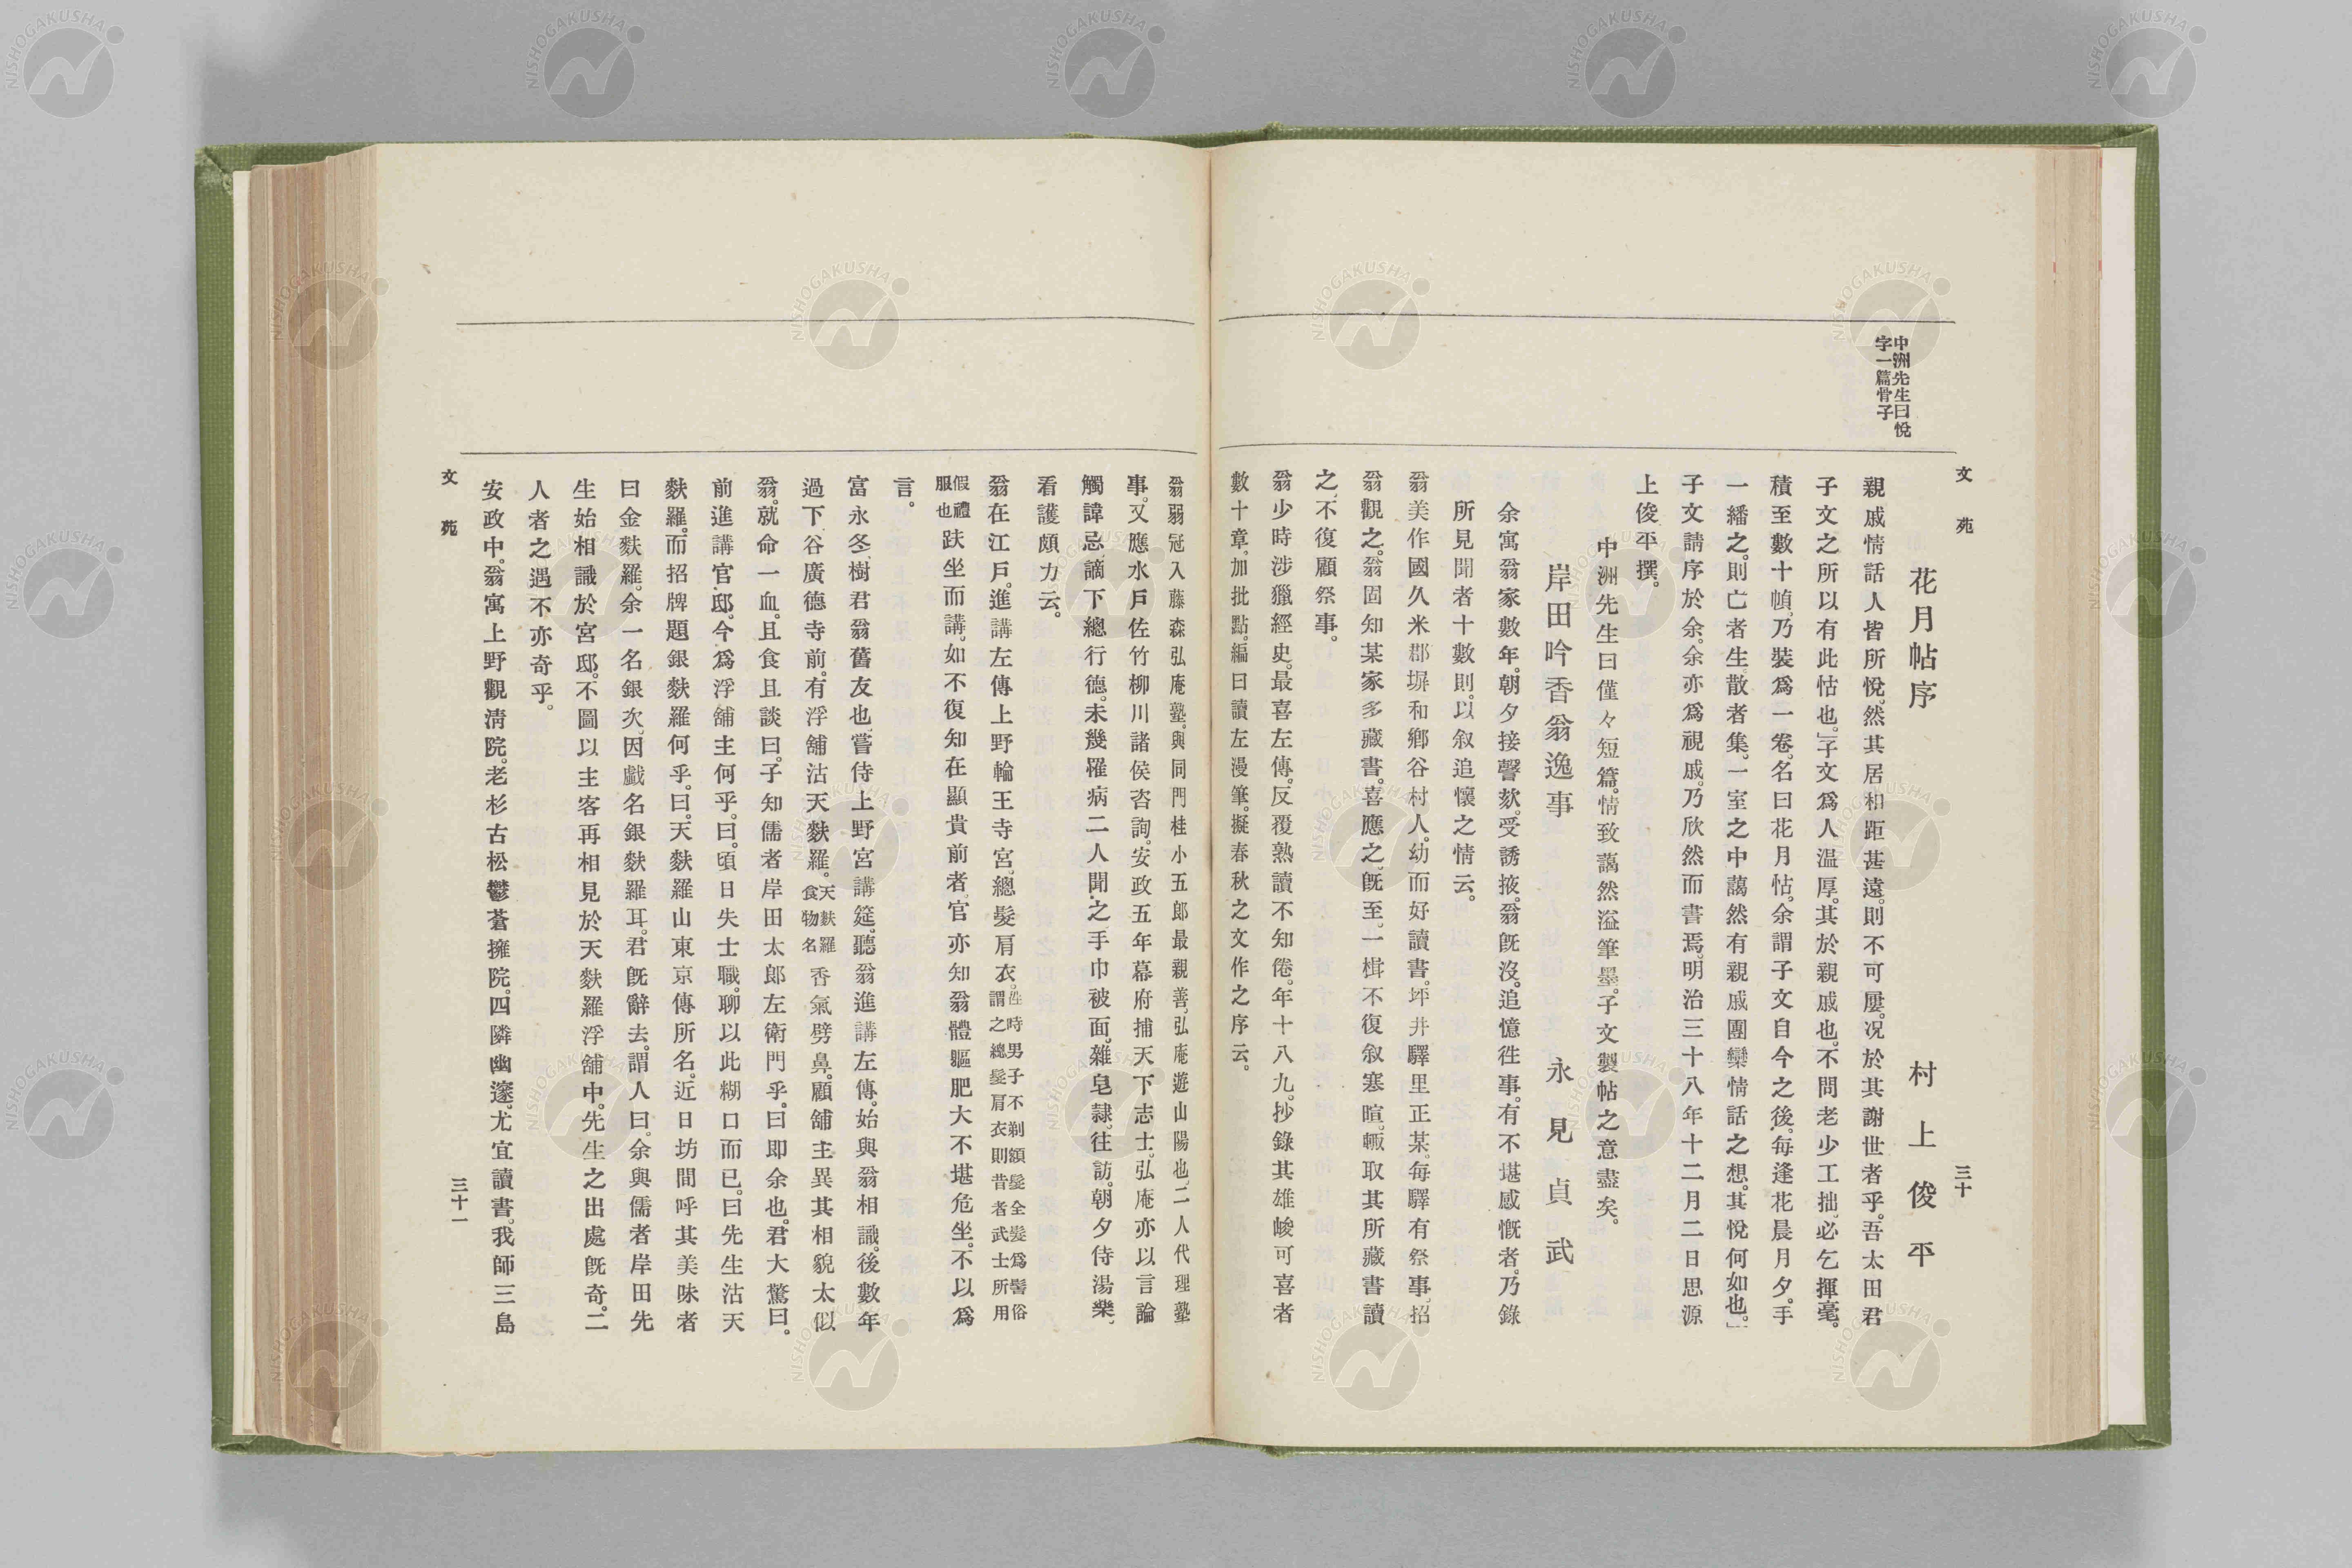 文苑
三十
中洲先生曰悅
字一篇骨子
花月帖序
村上俊平
親戚情話人皆所悅。然其居相距甚遠。則不可屢。况於其謝世者乎。吾太田君
子文之所以有此怗也。」子文爲人溫厚。其於親戚也。不問老少工拙。必乞揮毫。
積至數十幀。乃裝爲一卷。名曰花月怗。余謂子文自今之後。每逢花晨月夕。手
一繙之。則亡者生。散者集。一室之中藹然有親戚團欒情話之想。其悅何如也。」
子文請序於余。余亦爲視戚。乃欣然而書焉。明治三十八年十二月二日思源
上俊平撰。
中洲先生曰僅々短篇。情致藹然溢筆墨。子文製帖之意盡矣。
岸田吟香翁逸事
永見貞武
余寓翁家數年。朝夕接謦欬。受誘掖。翁旣沒。追憶徃事。有不堪感慨者。乃錄
所見聞者十數則。以叙追懷之情云。
翁美作國久米郡塀和鄕谷村人。幼而好讀書。坪井驛里正某。每驛有祭事。招
翁觀之。翁固知某家多藏書。喜應之。旣至。一楫不復叙寒暄。輙取其所藏書讀
之。不復顧祭事。
翁少時涉獵經史。最喜左傳。反覆熟讀不知倦。年十八九。抄錄其雄峻可喜者
數十章。加批點。編曰讀左漫筆。擬春秋之文作之序云。
翁弱冠入藤森弘庵塾。與同門桂小五郎最親善。弘庵遊山陽也。二人代理塾
事。又應水戶佐竹柳川諸侯咨詢。安政五年幕府捕天下志士。弘庵亦以言論
觸諱忌。謫下總行德。未幾罹病二人聞之手巾被面。雜皂隸。往訪。朝夕侍湯藥。
看護頗力云。
翁在江戶。進講左傳上野輪王寺宮。總髮肩衣。
此時男子不剃額髮全髮爲髻俗
謂之總髮肩衣則昔者武士所用
假禮
服也
趺坐而講。如不復知在顯貴前者。官亦知翁體軀肥大不堪危坐。不以爲
言。
富永冬樹君翁舊友也。嘗侍上野宮講筵。聽翁進講左傳。始與翁相識。後數年
過下谷廣德寺前。有浮舖沽天麩羅。
天麩羅
食物名
香氣劈鼻。顧舖主異其相貌太似
翁。就命一血。且食且談曰。子知儒者岸田太郎左衛門乎。曰即余也。君大驚曰。
前進講官邸。今爲浮舖主何乎。曰。頃日失士職。聊以此糊口而已。曰先生沽天
麩羅。而招牌題銀麩羅何乎。曰。天麩羅山東京傳所名。近日坊間呼其美味者
曰金麩羅。余一名銀次。因戲名銀麩羅耳。君旣辭去。謂人曰。余與儒者岸田先
生始相識於宮邸。不圖以主客再相見於天麩羅浮舖中。先生之出處旣奇。二
人者之遇不亦奇乎。
安政中。翁寓上野觀淸院。老杉古松鬱蒼擁院。四隣幽邃。尤宜讀書。我師三島
文苑
三十一